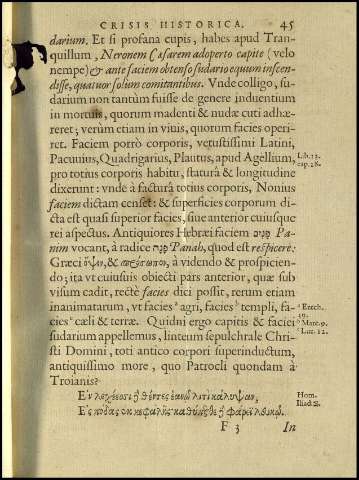 CRISIS HISTORICA. 45
darium. Et si profana cupis, habes apud Tran-
quillum, Neronem Cæsarem adoperto capite (velo
nempe) & ante faciem obtenso sudario equum inscen-
disse, quatuor solùm comitantibus. Vnde colligo, su-
darium non tantùm fuisse de genere induentium
in mortuis, quorum madenti & nudæ cuti adhæ-
reret; verùm etiam in viuis, quorum facies operi-
ret. Faciem porrò corporis, vetustissimi Latini,
Pacuuius, Quadrigarius, Plautus, apud Agellium,
Lib.13.
cap.28.
pro totius corporis habitu, staturâ & longitudine
dixerunt: vnde à facturâ totius corporis, Nonius
faciem dictam censet: & superficies corporum di-
cta est quasi superior facies, siue anterior cuiusque
rei aspectus. Antiquiores Hebræi faciem פנים Pa-
nim vocant, à radice פנה Panah, quod est respicere:
Græci ὄψιν, & πρόσωπον, à videndo & prospicien-
do; ita vt cuiusuis obiecti pars anterior, quæ sub
visum cadit, rectè facies dici possit, rerum etiam
inanimatarum, vt facies agri, facies templi, fa-
cies cæli & terræ. Quidni ergo capitis & faciei
sudarium appellemus, linteum sepulchrale Chri-
sti Domini, toti antico corpori superinductum,
antiquissimo more, quo Patrocli quondam à
Troianis?
Hom.
Iliad
Εν λεχέεσσι
F 3 In